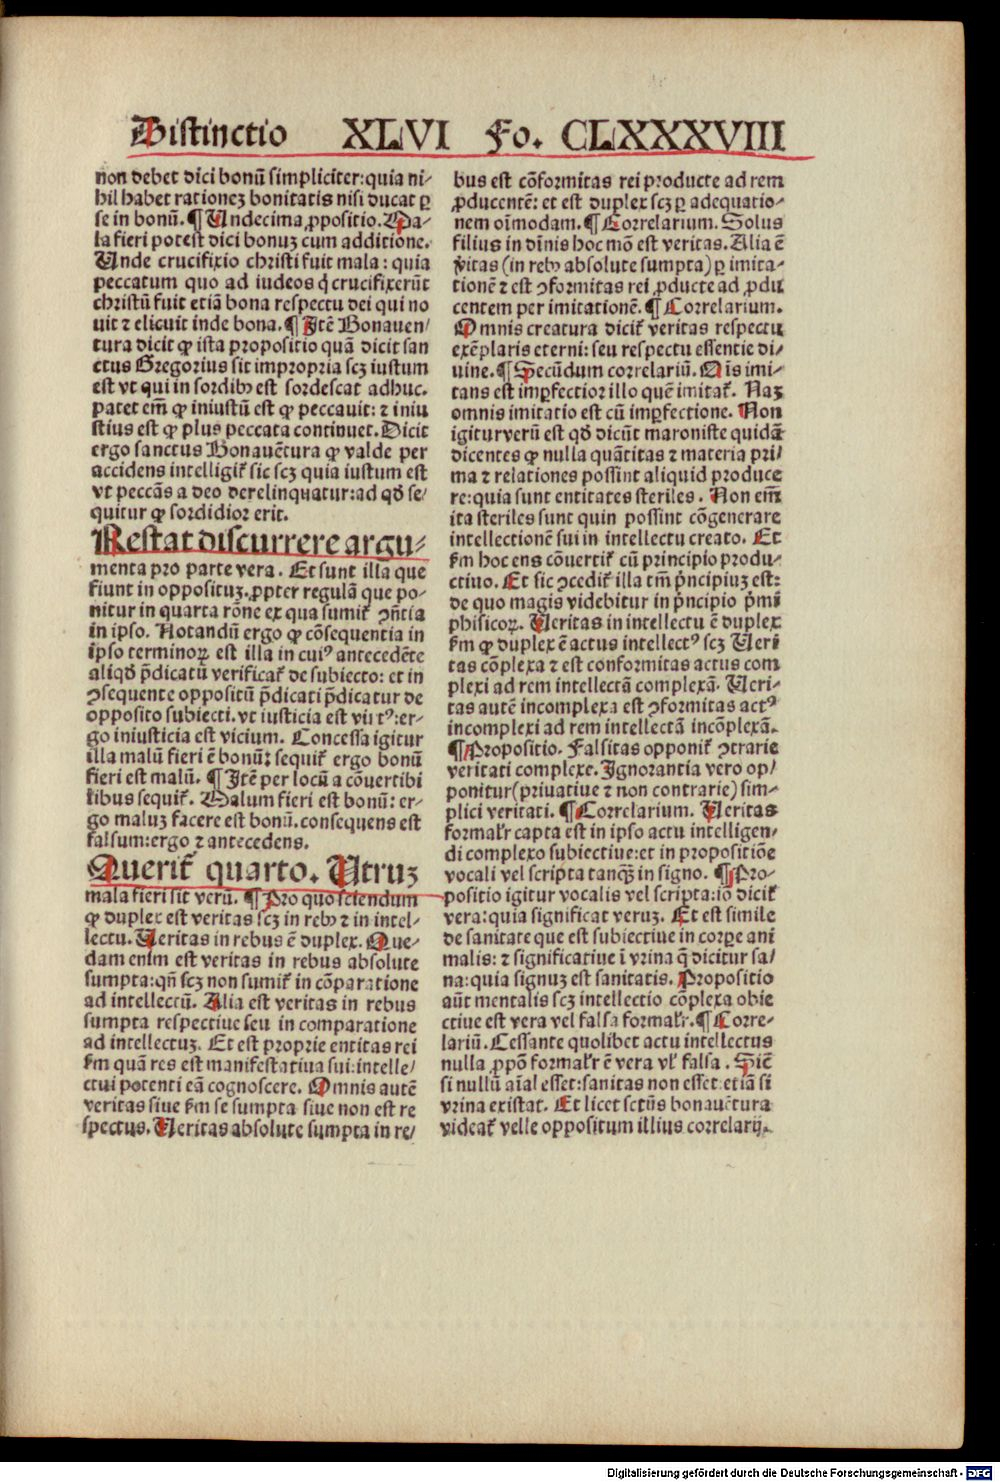 Distinctio XLVI Fo. CLXXXVIII
non debet dici bonũ simpliciter: quia ni-
hil habet rationeʒ bonitatis nisi ducat ꝑ
se in bonũ. ¶ Undecima ꝓpositio. Ma-
la fieri potest dici bonuʒ cum additione.
Unde crucifixio christi fuit mala: quia
peccatum quo ad iudeos q̇ crucifixerũt
christũ fuit etiã bona respectu dei qui no
uit ⁊ elicuit inde bona. ¶ Itẽ Bonauen/
tura dicit ꝙ ista propositio quã dicit san
ctus Gregorius sit impropria scʒ iustum
est vt qui in sordibꝰ est sordescat adhuc.
patet em̃ ꝙ iniustũ est ꝙ peccauit: ⁊ iniu
stius est ꝙ plus peccata continuet. Dicit
ergo sanctus Bonauẽtura ꝙ valde per
accidens intelligit᷑ sic scʒ quia iustum est
vt peccãs a deo derelinquatur: ad qđ se/
quitur ꝙ sordidior erit.
Restat discurrere argu-
menta pro parte vera. Et sunt illa que
fiunt in oppositũʒ. ꝓpter regulã que po-
nitur in quarta rõne ex qua sumit᷑ ꝯñtia
in ipso. Notandũ ergo ꝙ cõsequentia in
ipso terminoꝝ est illa in cuiꝰ antecedẽte
aliqđ p̃dicatũ verificat᷑ de subiecto: et in
ꝯsequente oppositũ p̃dicati p̃dicatur de
opposito subiecti. vt iusticia est virtꝰ: er-
go iniusticia est vicium. Concessa igitur
illa malũ fieri ẽ bonũ: sequit᷑ ergo bonũ
fieri est malũ. ¶ Itẽ per locũ a cõuertibi
libus sequit᷑. Malum fieri est bonũ: er-
go maluʒ facere est bonũ. consequens est
falsum: ergo ⁊ antecedens.
Querit᷑ quarto. Utruʒ
mala fieri sit verũ. ¶ Pro quo sciendum
ꝙ duplex est veritas scʒ in rebꝰ ⁊ in intel-
lectu. Veritas in rebus ẽ duplex. Que-
dam enim est veritas in rebus absolute
sumpta: qñ scʒ non sumit᷑ in cõparatione
ad intellectũ. Alia est veritas in rebus
sumpta respectiue seu in comparatione
ad intellectuʒ. Et est proprie entitas rei
ẜm quã res est manifestatiua sui: intelle/
ctui potenti eã cognoscere. Omnis autẽ
veritas siue ẜm se sumpta siue non est re
spectus. Veritas absolute sumpta in re/
bus est cõformitas rei producte ad rem
ꝓducentẽ: et est duplex scʒ ꝑ adequatio-
nem oĩmodam. ¶ Correlarium. Solus
filius in diuĩnis hoc mõ est veritas. Alia ẽ
v̾itas (in rebꝰ absolute sumpta) ꝑ imita-
tionẽ ⁊ est ꝯformitas rei ꝓducte ad ꝓdu
centem per imitationẽ. ¶ Correlarium.
Omnis creatura dicit᷑ veritas respectu
exẽplaris eterni: seu respectu essentie di-
uine. ¶ Secũdum correlariũ. Oĩs imi-
tans est imꝑfectior illo quẽ imitat᷑. Naʒ
omnis imitatio est cũ imꝑfectione. Non
igitur verũ est qđ dicũt maroniste quidã
dicentes ꝙ nulla quãtitas ⁊ materia pri/
ma ⁊ relationes possint aliquid produce
re: quia sunt entitates steriles. Non em̃
ita steriles sunt quin possint cõgenerare
intellectionẽ sui in intellectu creato. Et
ẜm hoc ens cõuertit᷑ cũ principio produ-
ctiuo. Et sic ꝯcedit᷑ illa tm̃ p̃ncipiuʒ est:
de quo magis videbitur in p̃ncipio p̃mi
phisicoꝝ. Veritas in intellectu ẽ duplex
ẜm ꝙ duplex ẽ actus intellectꝰ scʒ Veri
tas cõplexa ⁊ est conformitas actus com
plexi ad rem intellectã complexã. Veri-
tas autẽ incomplexa est ꝯformitas actꝰ
incomplexi ad rem intellectã incõplexã.
¶ Propositio. Falsitas opponit᷑ ꝯtrarie
veritati complexe. Ignorantia vero op/
ponitur (priuatiue ⁊ non contrarie) sim-
plici veritati. ¶ Correlarium. Veritas
formalr̃ capta est in ipso actu intelligen/
di complexo subiectiue: et in propositiõe
vocali vel scripta tanqʒ̃ in signo. ¶ Pro-
positio igitur vocalis vel scripta: iõ dicit᷑
vera: quia significat veruʒ. Et est simile
de sanitate que est subiectiue in corꝑe ani
malis: ⁊ significatiue ĩ vrina q̃ dicitur sa/
na: quia signuʒ est sanitatis. Propositio
aũt mentalis scʒ intellectio cõplexa obie
ctiue est vera vel falsa formalr̃. ¶ Corre-
lariũ. Cessante quolibet actu intellectus
nulla ꝓpõ formalr̃ ẽ vera vl̾ falsa. Sicẽ
si nullũ aĩal esset: sanitas non esset: etiã si
vrina existat. Et licet sctũs bonauẽtura
videat᷑ velle oppositum illius correlarij.
Digitalisierung gefördert durch die Deutsche Forschungsgemeinschaft - DFG